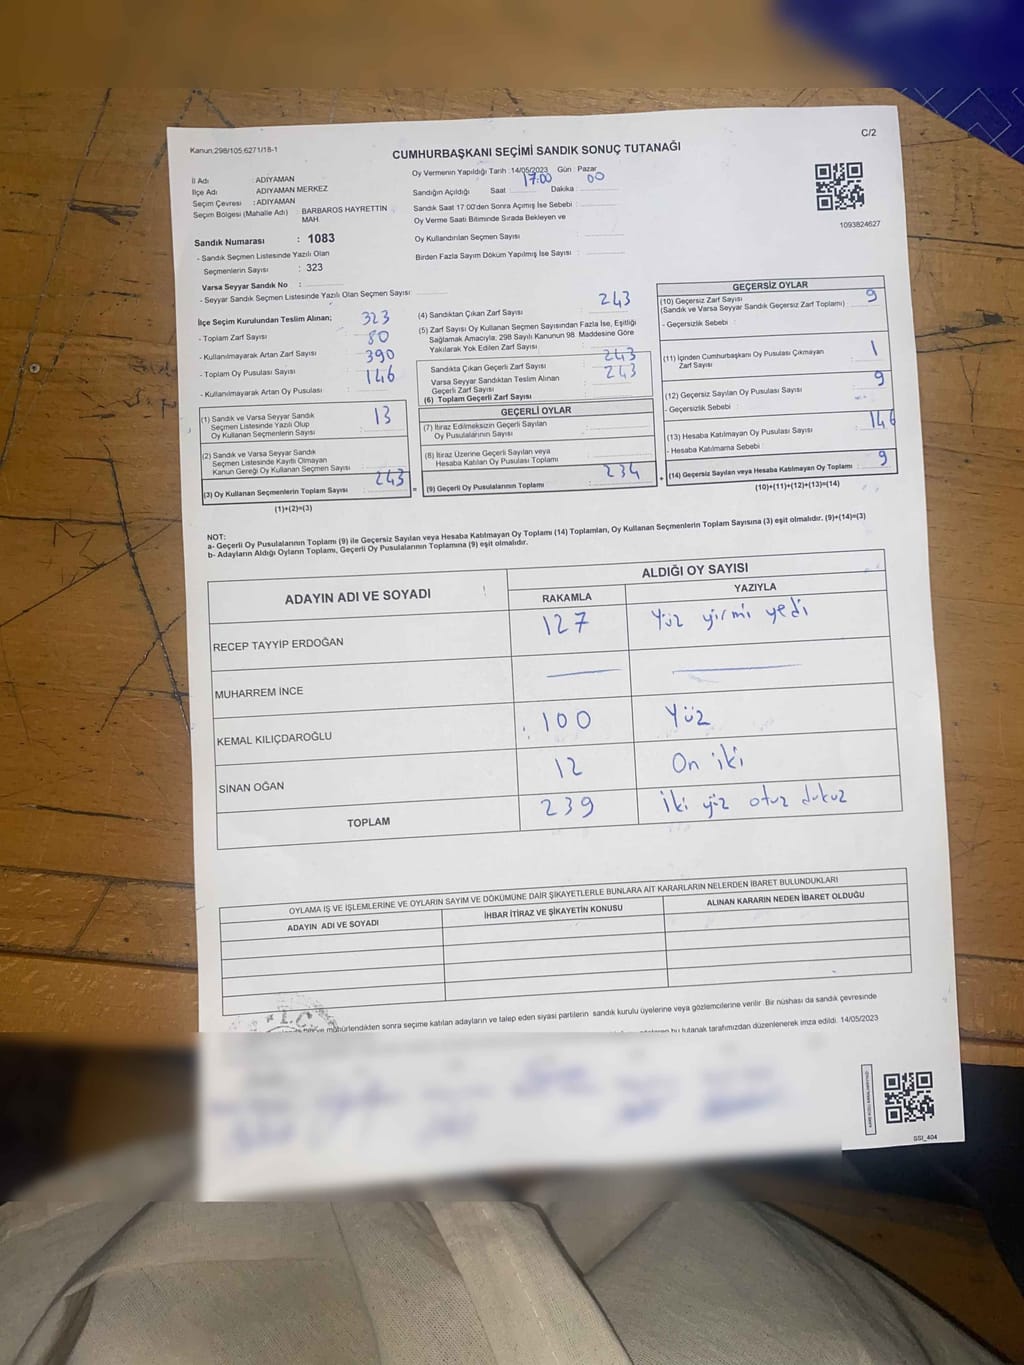 Kanun,298/105,6271/18-1
C/2
CUMHURBAŞKANI SEÇİMİ SANDIK SONUÇ TUTANAĞI
İl Adı : ADIYAMAN
İlçe Adı : ADIYAMAN MERKEZ
Seçim Çevresi : ADIYAMAN
Seçim Bölgesi (Mahalle Adı) : BARBAROS HAYRETTİN MAH.
Sandık Numarası : 1083
- Sandık Seçmen Listesinde Yazılı Olan
Seçmenlerin Sayısı : 323
Varsa Seyyar Sandık No :
- Seyyar Sandık Seçmen Listesinde Yazılı Olan Seçmen Sayısı
Oy Vermenin Yapıldığı Tarih : 14/05/2023 Gün : Pazar
Sandığın Açıldığı Saat 17:00 Dakika : 00
Sandık Saat 17:00'den Sonra Açımış İse Sebebi :
Oy Verme Saati Bitiminde Sırada Bekleyen ve
Oy Kullandırılan Seçmen Sayısı :
Birden Fazla Sayım Döküm Yapılmış İse Sayısı :
1093824627
İlçe Seçim Kurulundan Teslim Alınan; 323
- Toplam Zarf Sayısı : 80
- Kullanılmayarak Artan Zarf Sayısı : 390
- Toplam Oy Pusulası Sayısı : 146
- Kullanılmayarak Artan Oy Pusulası :
(1) Sandık ve Varsa Seyyar Sandık
Seçmen Listesinde Yazılı Olup
Oy Kullanan Seçmenlerin Sayısı : 13
(2) Sandık ve Varsa Seyyar Sandık
Seçmen Listesinde Kayıtlı Olmayan
Kanun Gereği Oy Kullanan Seçmen Sayısı
(3) Oy Kullanan Seçmenlerin Toplam Sayısı : 243
(1)+(2)=(3)
(4) Sandıktan Çıkan Zarf Sayısı : 243
(5) Zarf Sayısı Oy Kullanan Seçmen Sayısından Fazla İse, Eşitliği
Sağlamak Amacıyla, 298 Sayılı Kanunun 98. Maddesine Göre
Yakılarak Yok Edilen Zarf Sayısı :
Sandıkta Çıkan Geçerli Zarf Sayısı : 243
Varsa Seyyar Sandıktan Teslim Alınan 243
Geçerli Zarf Sayısı
(6) Toplam Geçerli Zarf Sayısı :
GEÇERLİ OYLAR
(7) İtiraz Edilmeksizin Geçerli Sayılan
Oy Pusulalarının Sayısı :
(8) İtiraz Üzerine Geçerli Sayılan veya
Hesaba Katılan Oy Pusulası Toplamı :
= (9) Geçerli Oy Pusulalarının Toplamı : 234
GEÇERSİZ OYLAR
(10) Geçersiz Zarf Sayısı 9
(Sandık ve Varsa Seyyar Sandık Geçersiz Zarf Toplamı) :
- Geçersizlik Sebebi :
(11) İçinden Cumhurbaşkanı Oy Pusulası Çıkmayan 1
Zarf Sayısı :
(12) Geçersiz Sayılan Oy Pusulası Sayısı : 9
- Geçersizlik Sebebi :
(13) Hesaba Katılmayan Oy Pusulası Sayısı : 146
- Hesaba Katılmama Sebebi :
+ (14) Geçersiz Sayılan veya Hesaba Katılmayan Oy Toplamı : 9
(10)+(11)+(12)+(13)=(14)
NOT:
a- Geçerli Oy Pusulalarının Toplamı (9) ile Geçersiz Sayılan veya Hesaba Katılmayan Oy Toplamı (14) Toplamları, Oy Kullanan Seçmenlerin Toplam Sayısına (3) eşit olmalıdır. (9)+(14)=(3)
b- Adayların Aldığı Oyların Toplamı, Geçerli Oy Pusulalarının Toplamına (9) eşit olmalıdır.
ADAYIN ADI VE SOYADI ALDIĞI OY SAYISI
RAKAMLA YAZIYLA
RECEP TAYYİP ERDOĞAN 127 Yüz yirmi yedi
MUHARREM İNCE
KEMAL KILIÇDAROĞLU 100 Yüz
SİNAN OĞAN 12 On iki
TOPLAM 239 iki yüz otuz dukuz
OYLAMA İŞ VE İŞLEMLERİNE VE OYLARIN SAYIM VE DÖKÜMÜNE DAİR ŞİKAYETLERLE BUNLARA AİT KARARLARIN NELERDEN İBARET BULUNDUKLARI
ADAYIN ADI VE SOYADI İHBAR İTİRAZ VE ŞİKAYETİN KONUSU ALINAN KARARIN NEDEN İBARET OLDUĞU
T.C.
mühürlendikten sonra seçime katılan adayların ve talep eden siyasi partilerin sandık kurulu üyelerine veya gözlemcilerine verilir. Bir nüshası da sandık çevresinde
bu tutanak tarafımızdan düzenlenerek imza edildi. 14/05/2023
SSI_404